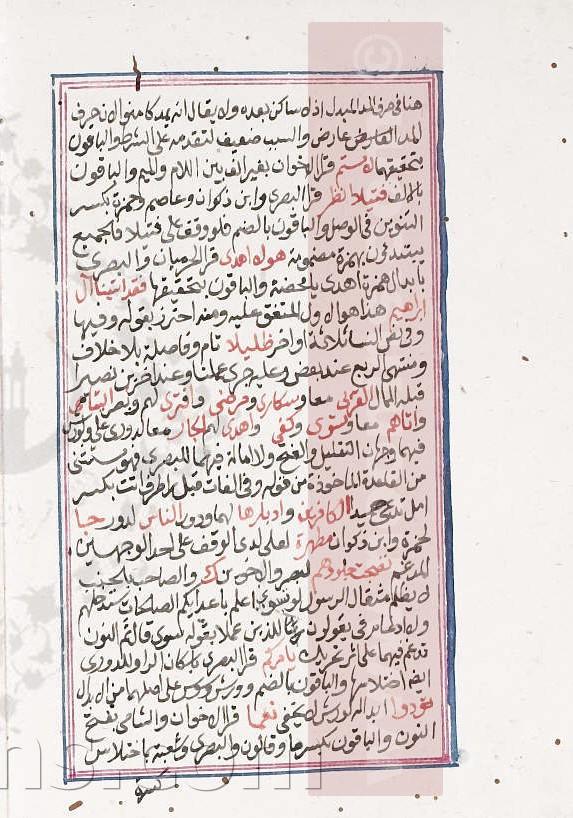 هنا في حرف المد المبدل اذ لا ساكن بعده ولا يقال انه مد كآمنوا لان حرف
المد العارض عارض والسبب ضعيف لتقدمه على الشرط والباقون
بتحقيقها لا مستم قرا الاخوان بغير الف بين اللام والميم والباقون
بالالف فتيلا انظر قرا البصري وابن ذكوان وعاصم وحمزة بكسر
التنوين في الوصل والباقون بالضم فلو وقف على فتيلا فالجميع
يبتدئون بهمزة مضمومة هؤلاء اهدى قرا الحرميان والبصري
بابدال همزة اهدى ياء محضة والباقون بتحقيقها فقد اتينا ال
ابراهيم هذا هو الاول المتفق عليه ومنه احترز بقوله وفيها
وفي نص النسا ثلاثة اواخر ظليلا تام وفاصلة بلا خلاف
ومنتهى الربع عند بعض وعليه جرى عملنا وعند اخرين نصيرا
قبله الممال القربى معا وسكارى ومرضى وافترى لهم وبصر الناس
واتاهم معا وتسوى وكفى واهدى لهم الجار معا لدوري علي وورش
فيهما وجهان التقليل والفتح ولا امالة فيهما للبصري فهو مستثنى
من القاعدة الماخوذة من قوله وفي الفات قبل را طرف اتت بكسر
امل تدعى حميدا الكافرين وادبارها لهما ودور الناس لدور جا
لحمزة وابن ذكوان مطهرة لعلي لدى الوقف على احد الوجهين
المدغم نضجت جلودهم لبصر والاخوين ك والصاحب بالجنب
لا يظلم مثقال الرسول لو تسوى اعلم باعدائكم الصالحات سندخلهم
ولا ادغام في يقولون للذين عملا بقوله سوى قال ثم النون
تدغم فيهما على اثر تحريك يامركم قرا البصري باسكان الرا وللدوري
ايضا اختلاسها والباقون بالضم وورش وسوسي على اصلهما من الابدال
تؤدوا ابداله لورش لا يخفى نعما قرا الاخوان والشامي بفتح
النون والباقون بكسرها وقالون والبصري وشعبة باختلاس
كسرة